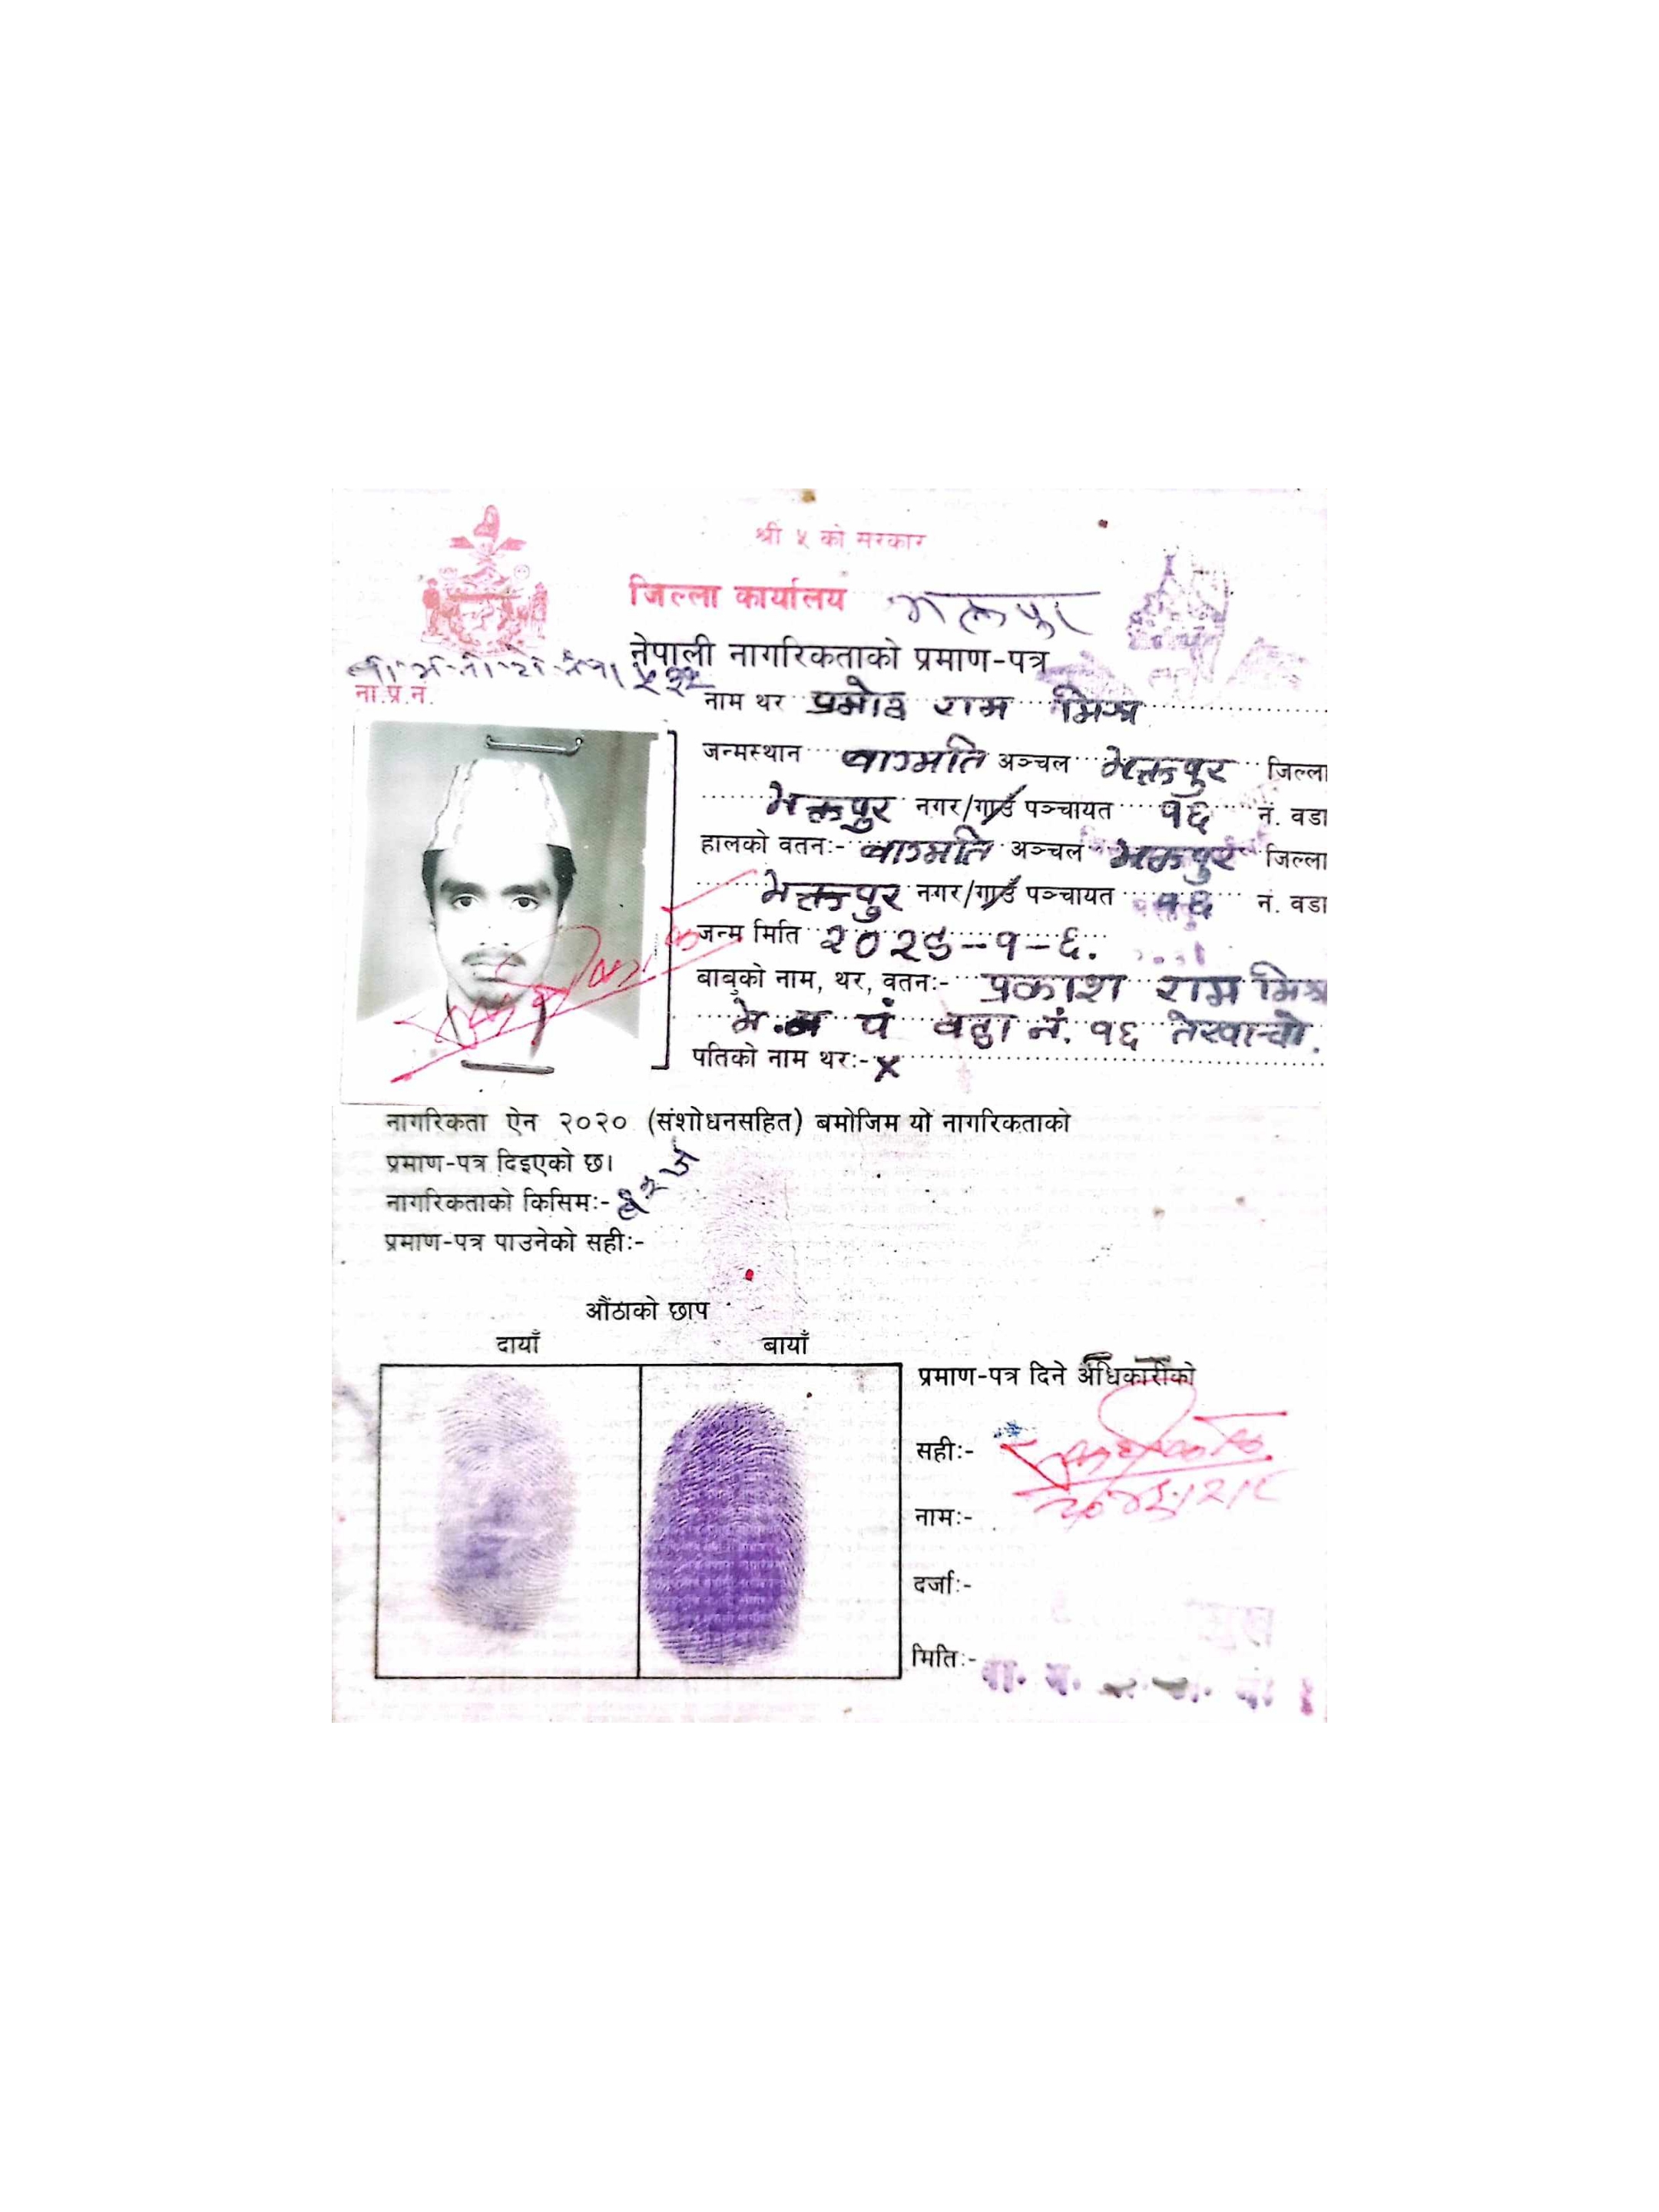 श्री ५ को सरकार
जिल्ला कार्यालय भक्तपुर
नेपाली नागरिकताको प्रमाण-पत्र
ना.प्र.नं.
नाम थर प्रमोद राम मिश्र
जन्मस्थान बागमति अञ्चल भक्तपुर जिल्ला
भक्तपुर नगर/गाउँ पञ्चायत १६ नं. वडा
हालको वतनः- बागमति अञ्चल भक्तपुर जिल्ला
भक्तपुर नगर/गाउँ पञ्चायत १६ नं. वडा
जन्म मिति २०२९-१-६.
बाबुको नाम, थर, वतनः- प्रकाश राम मिश्र
भ. न पं वडा नं. १६ तेखाचो.
पतिको नाम थरः- x
नागरिकता ऐन २०२० (संशोधनसहित) बमोजिम यो नागरिकताको
प्रमाण-पत्र दिइएको छ।
नागरिकताको किसिमः-
प्रमाण-पत्र पाउनेको सहीः-
औंठाको छाप
दायाँ बायाँ
प्रमाण-पत्र दिने अधिकारीको
सहीः-
नामः-
दर्जाः-
मितिः-